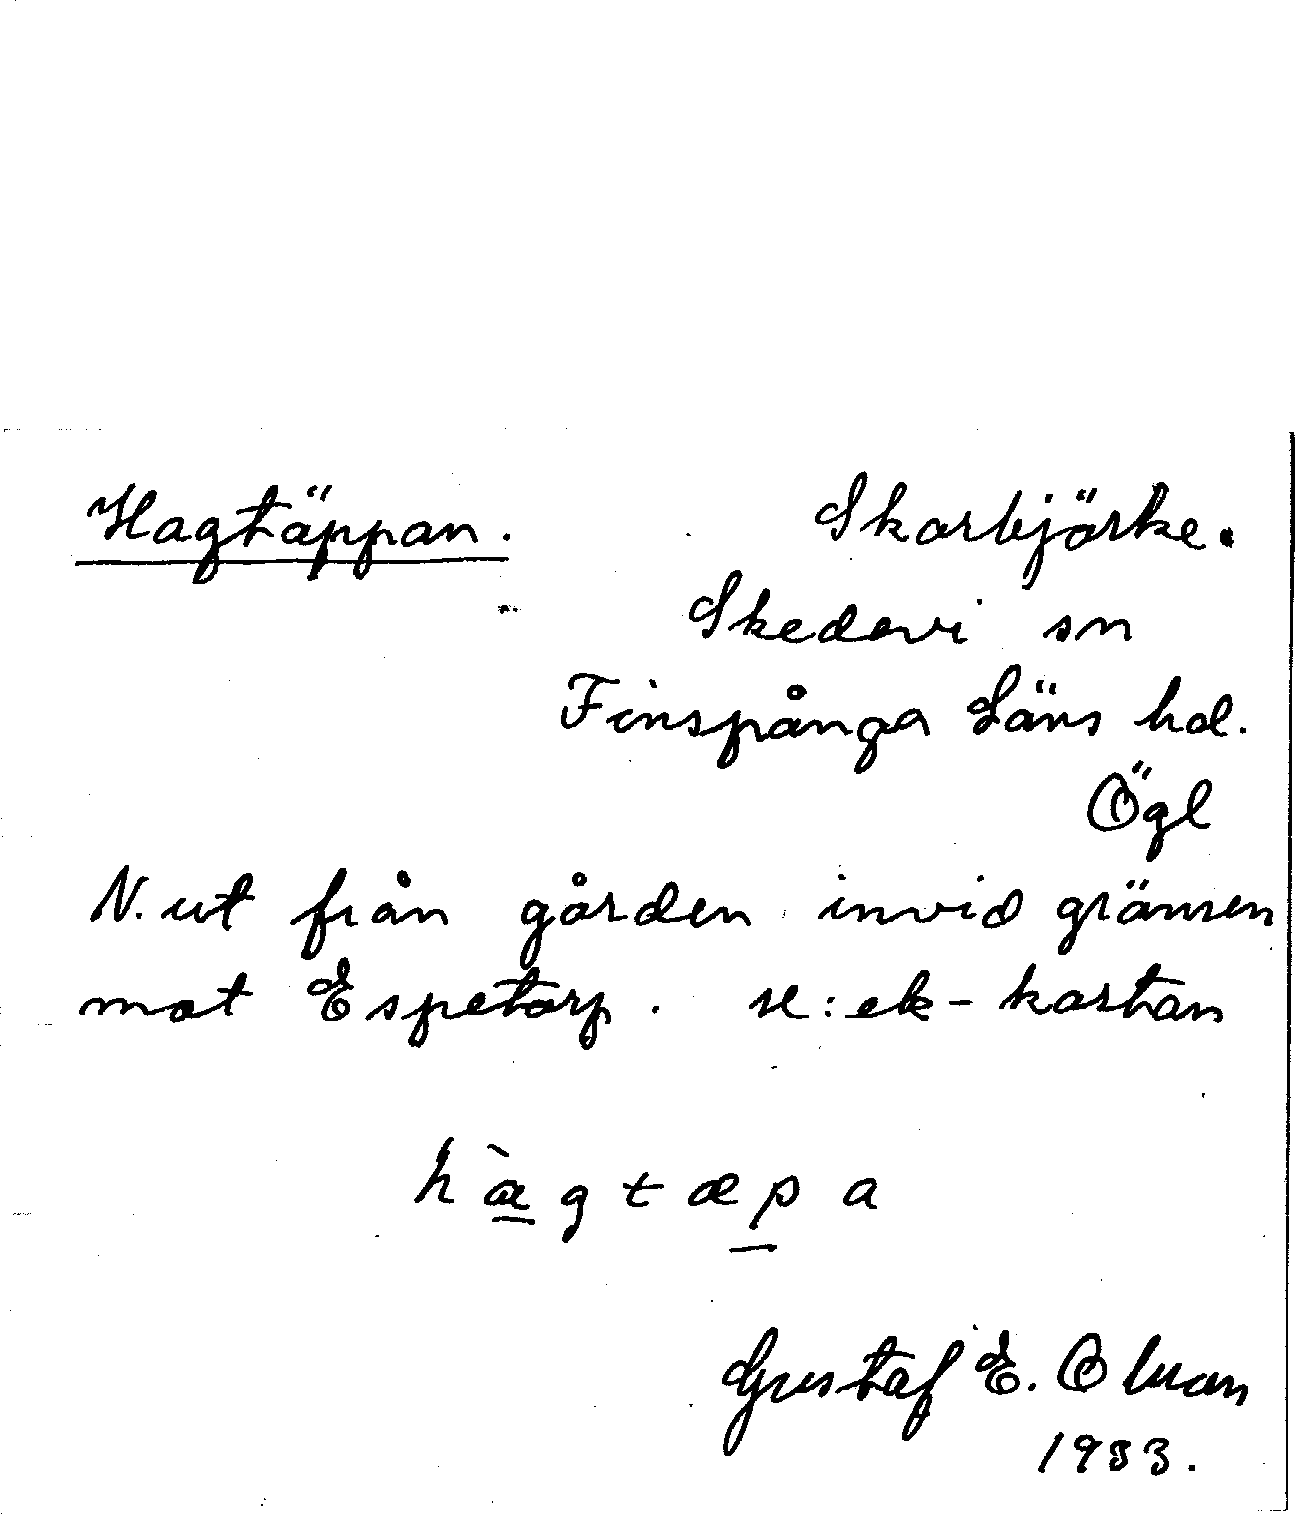 Hagtäppan. Skarbjörke.
Skedevi sn
Finspånga Läns hd.
Ögl
N. ut från gården invid gränsen
mot Espetorp. se: ek-kartan
hàgtæpa
Gustaf E. Olsson
1933.